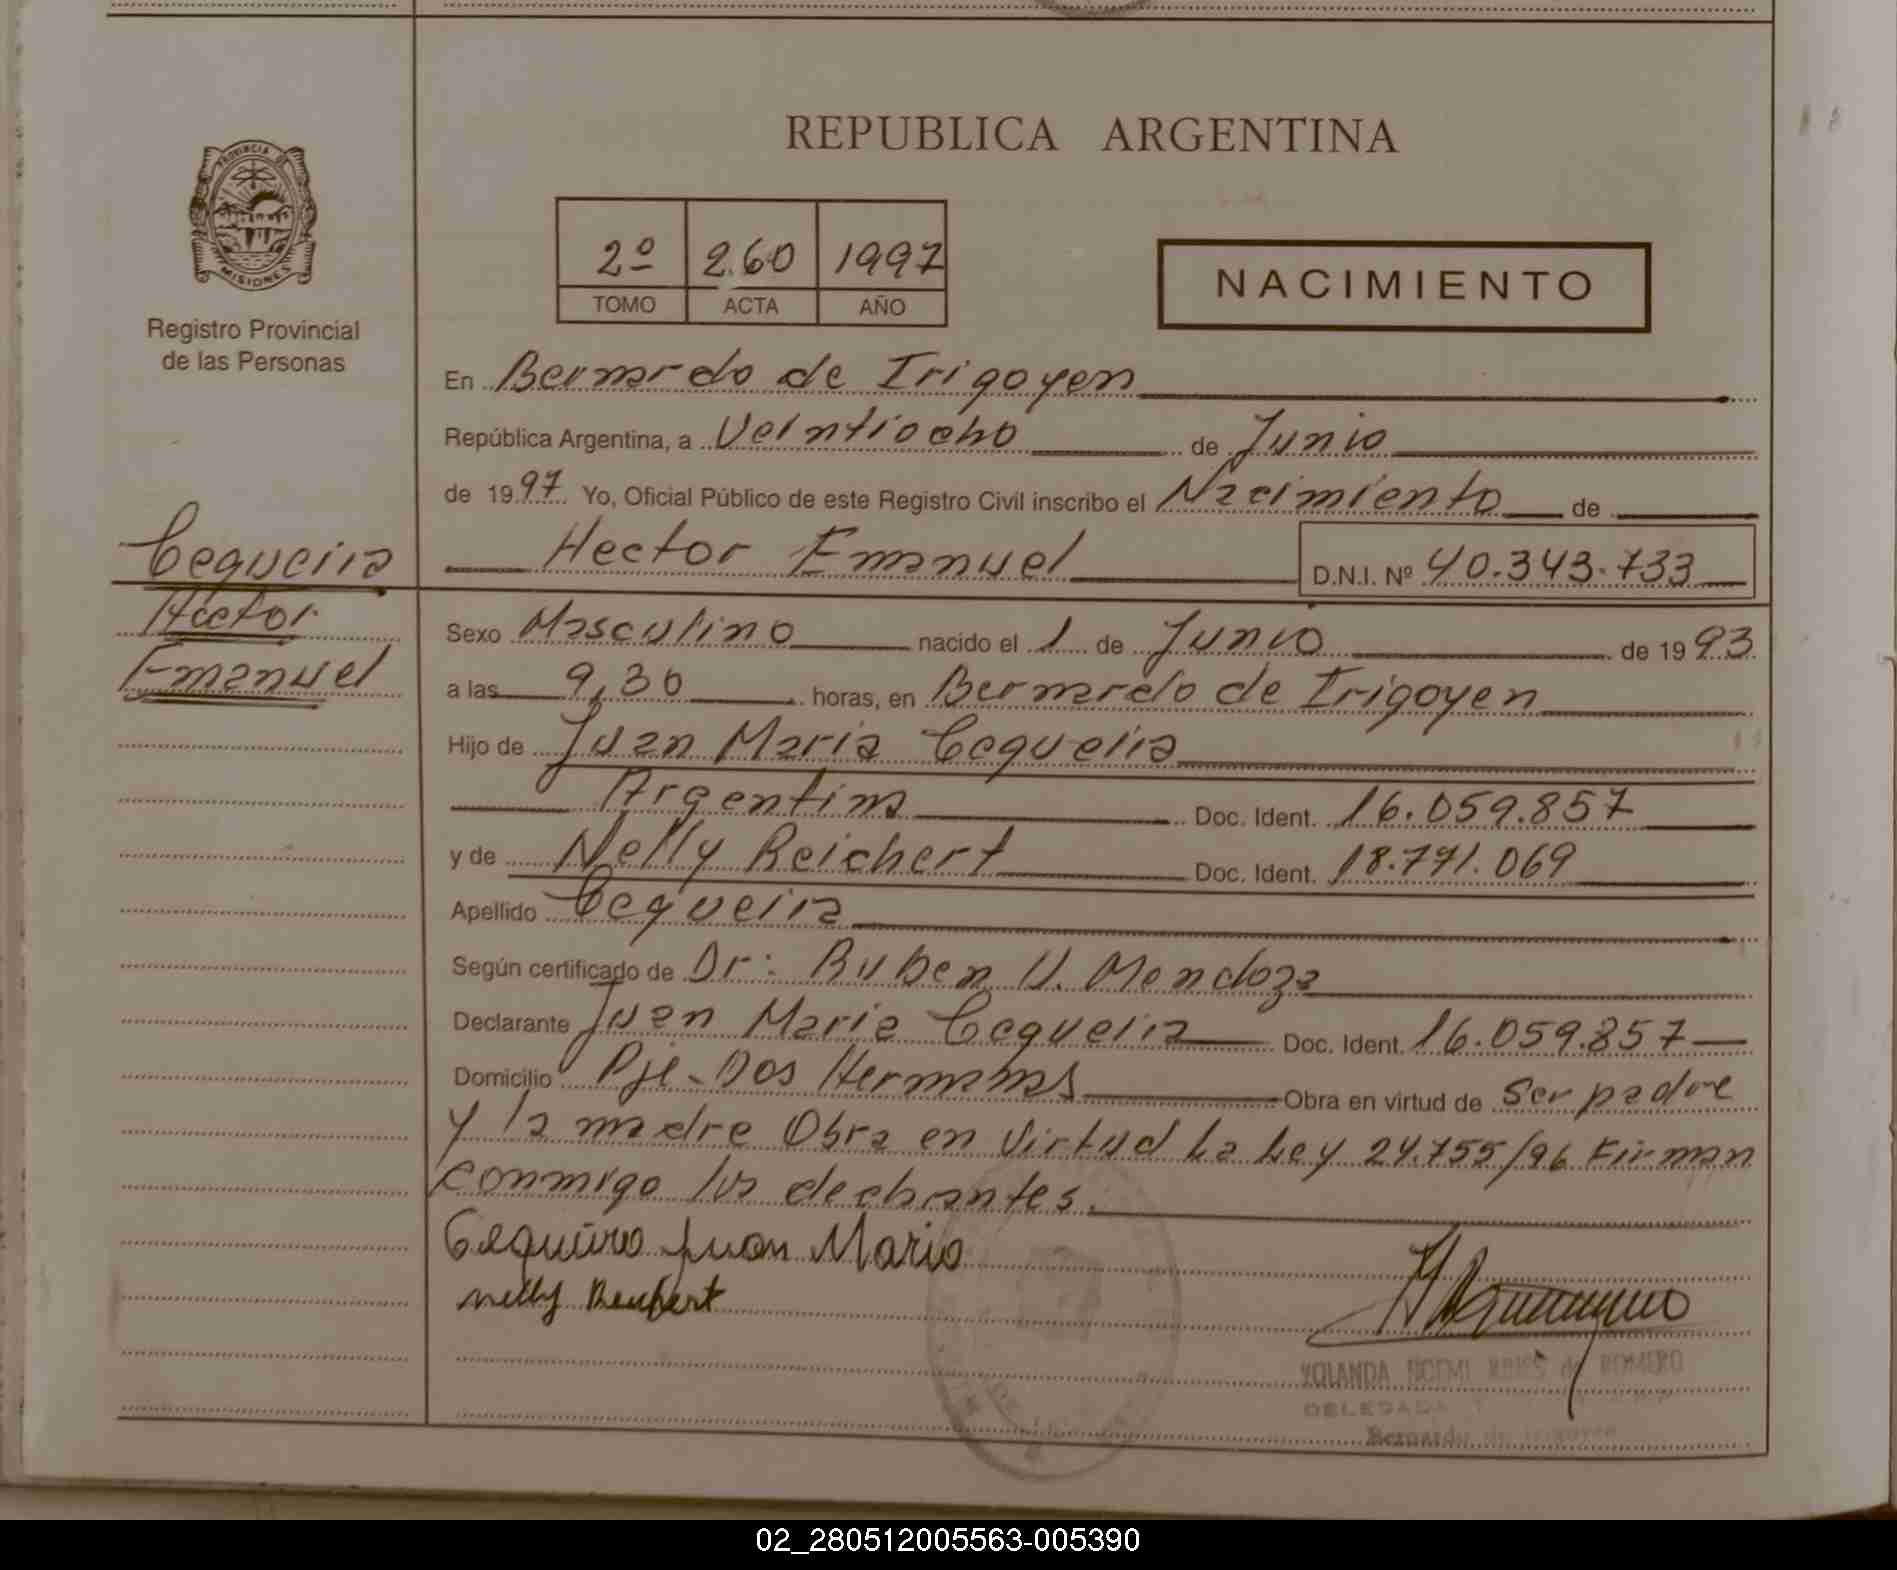 REPUBLICA ARGENTINA
PROVINCIA DE
MISIONES
Registro Provincial
de las Personas
2º 260 1997
TOMO ACTA AÑO
NACIMIENTO
En Bernardo de Irigoyen
República Argentina, a Veintiocho de Junio
de 1997 Yo, Oficial Público de este Registro Civil inscribo el Nacimiento de
Hector Emanuel D.N.I. Nº 40.343.733
Cequeira
Hector
Emanuel
Sexo Masculino nacido el 1 de Junio de 1993
a las 9,30 horas, en Bernardo de Irigoyen
Hijo de Juan Maria Cequeira
Argentina Doc. Ident. 16.059.857
y de Nelly Reichert Doc. Ident. 18.771.069
Apellido Cequeira
Según certificado de Dr: Ruben U. Mendoza
Declarante Juan Maria Cequeira Doc. Ident. 16.059.857
Domicilio Pje. Dos Hermanas Obra en virtud de Ser padre
y la madre Obra en Virtud La Ley 24.755/96 Firman
conmigo los declarantes.
Cequeira Juan Maria
Nelly Reichert
YOLANDA NOEMI de ROMERO
DELEGADA
Bernardo de Irigoyen
02_280512005563-005390